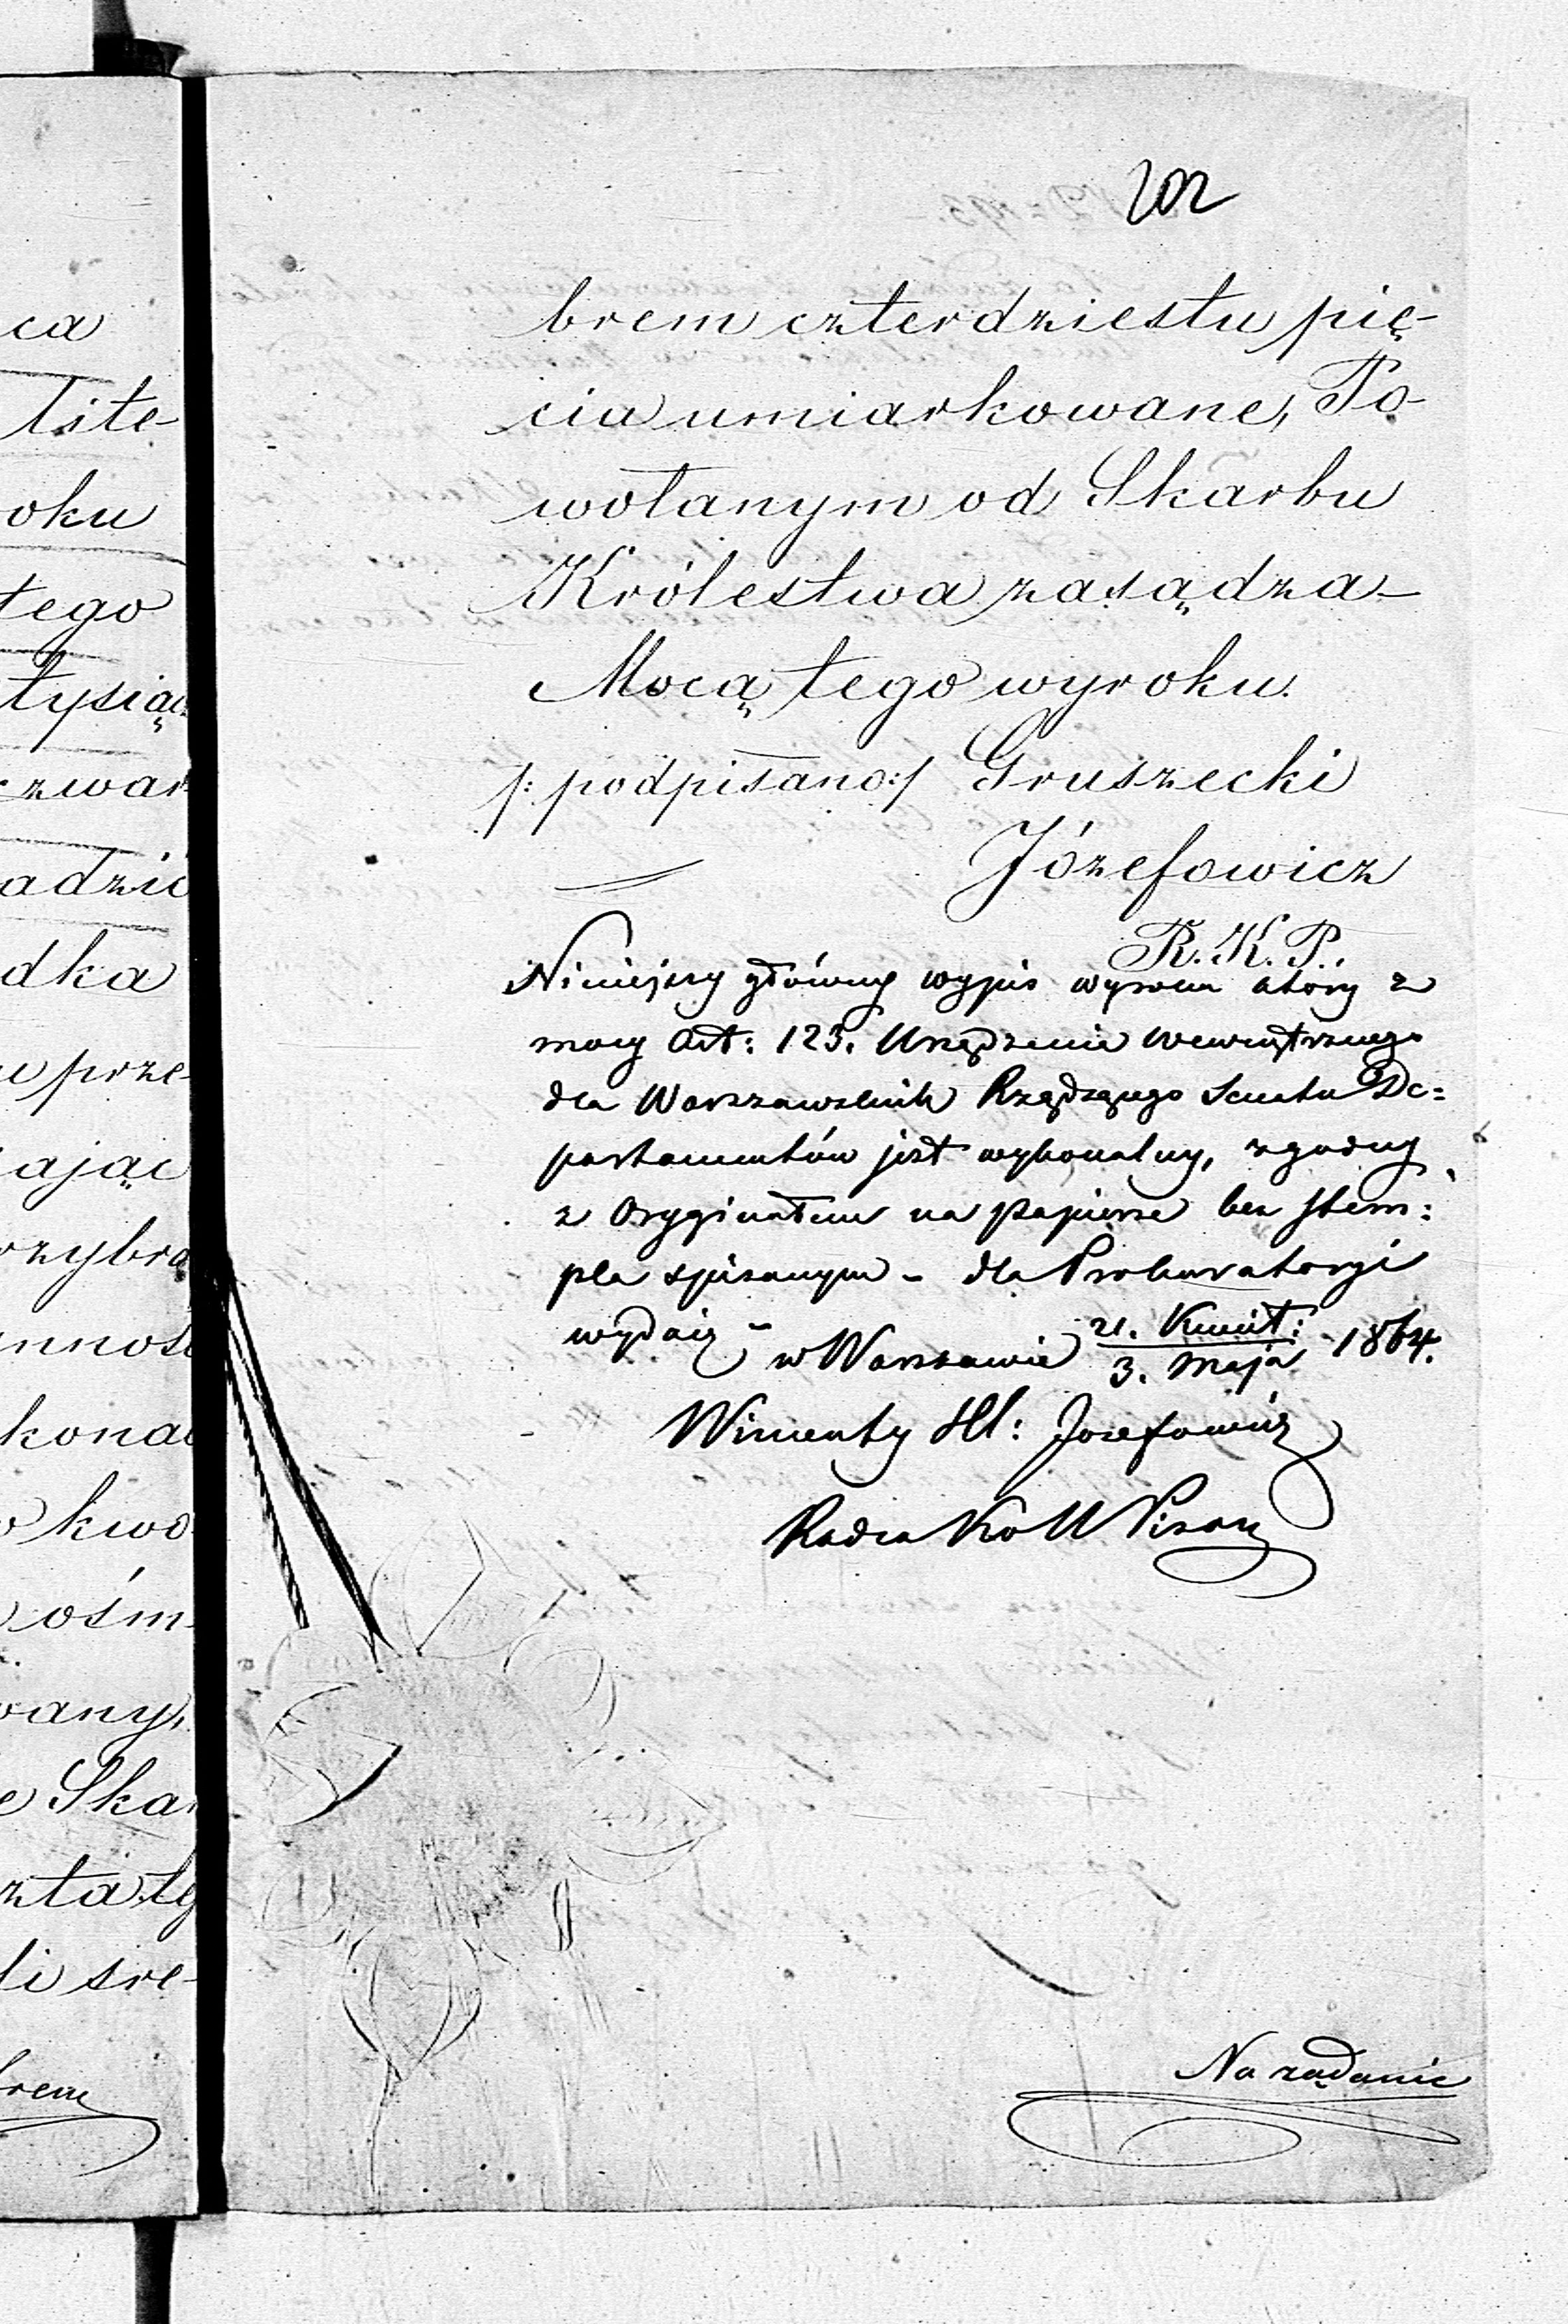 202
ca
lite-
oku
tego
tysiąc
czwar
adzić
dka
u prze-
iając
rzybra
nność
konać
kwo
ośm
wany,
e Skar
li sre-
brem
brem czterdziestu pię-
cia umiarkowane, Po-
wołanym od Skarbu
Królestwa zasądza
Mocą tego wyroku.
/: podpisano :/ Gruszecki
Józefowicz
R. K. P.
Niniejszy główny wypis wyroku który z
mocy Art: 123. Urządzenia wewnętrznego
dla Warszawskich Rządzącego Senatu De=
partamentów jest wykonalny, zgodny
z Oryginałem na papierze bez stem:
pla spisanym - dla Prokuratoryi
wydaię - w Warszawie 21. Kwiet: / 3. Maja 1864.
Wincenty Józefowicz
Radca Pisarz
Na żądanie